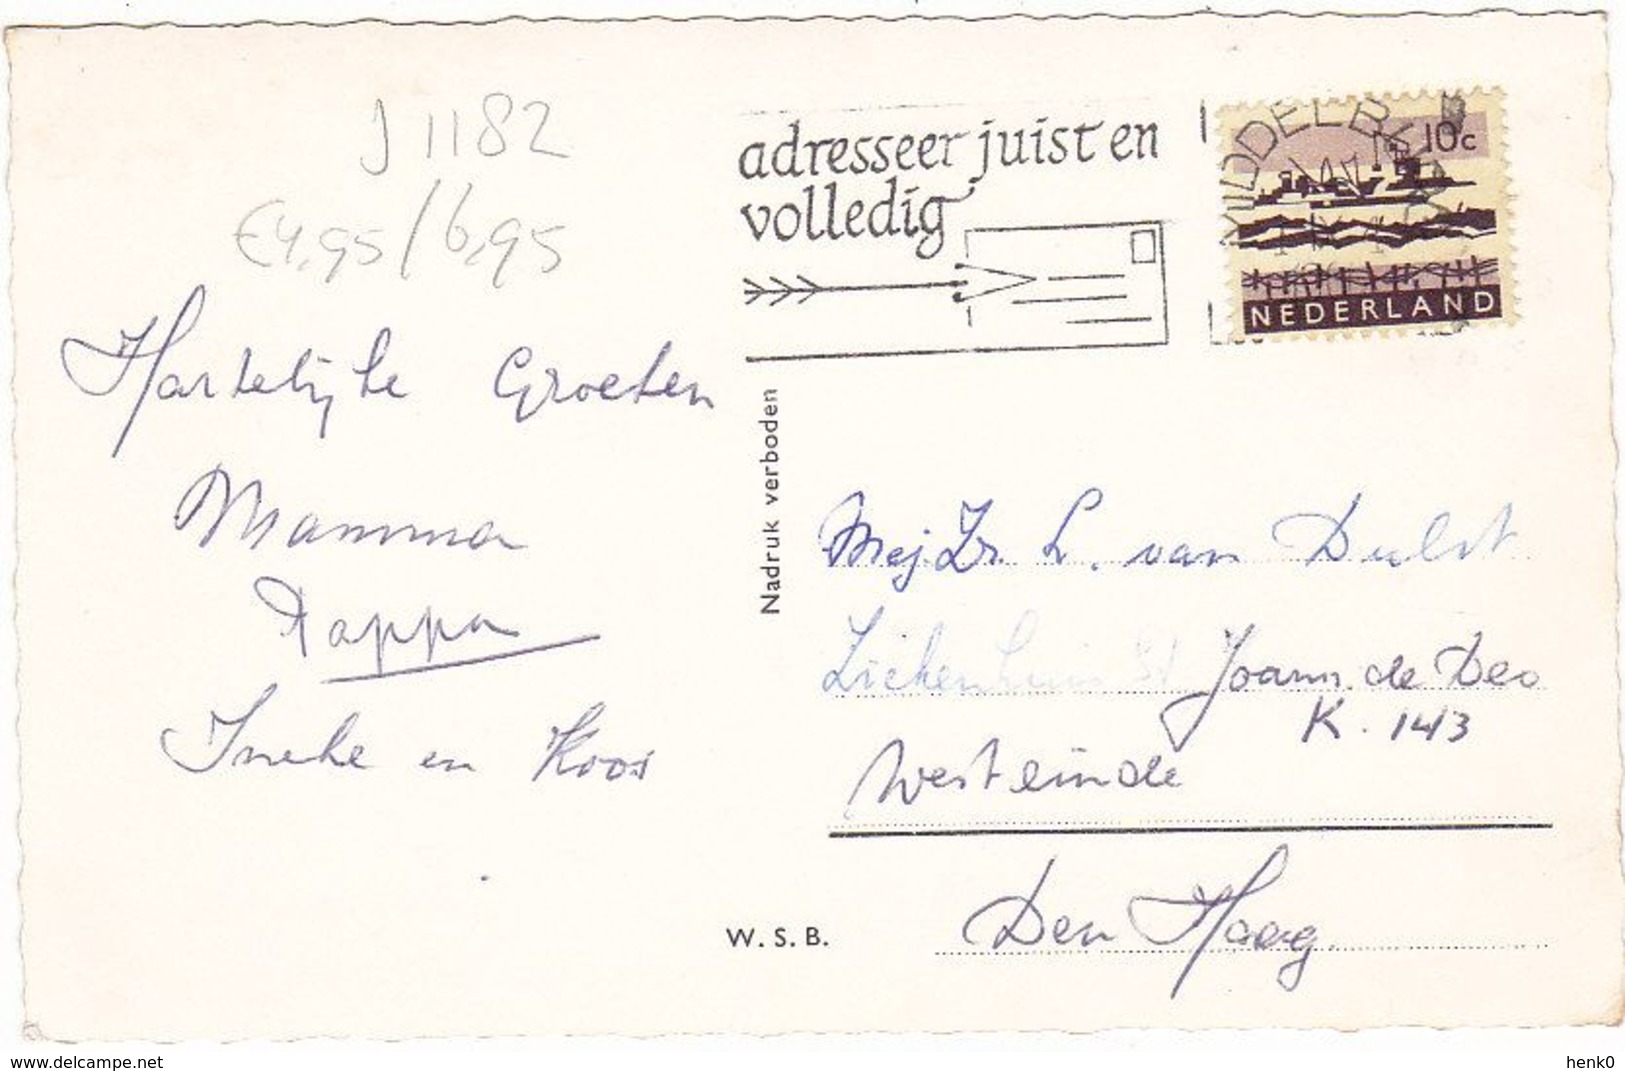 J 1182
€4,95/6,95
adresseer juist en
volledig
MIDDELBURG
10c
NEDERLAND
Hartelijke Groeten
Mamma
Pappa
Ineke en Koos
Nadruk verboden
Mej. Zr. L. van Dulst
Ziekenhuis St Joann. de Deo
K. 143
Westeinde
Den Haag.
W.S.B.
www.delcampe.net
henk0